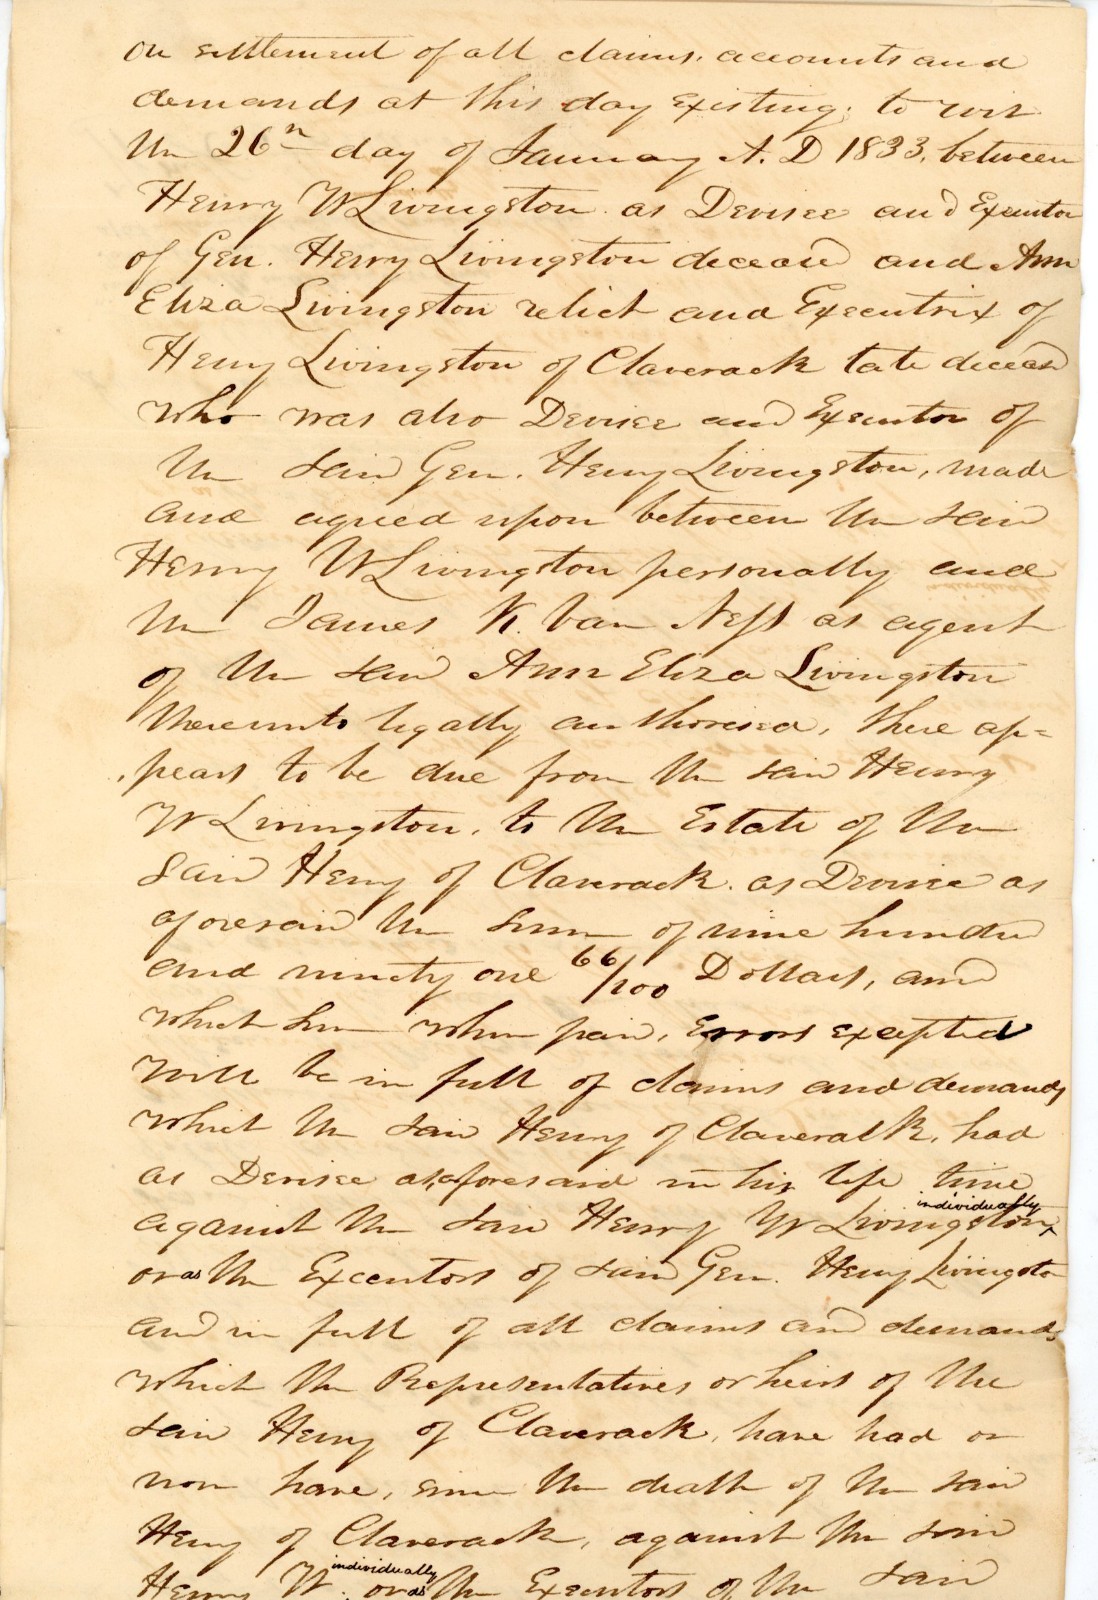 On settlement of all claims, accounts and
demands at this day existing, to wit
the 26th day of January A.D 1833, between
Henry W Livingston as Devisee and Executor
of Gen. Henry Livingston deceasd and Ann
Eliza Livingston relict and Executrix of
Henry Livingston of Claverack late deceasd
who was also Devisee and Executor of
the said Gen. Henry Livingston, made
and agreed upon between the said
Henry W Livingston personally and
the James V. Van Ness as agent
of the said Ann Eliza Livingston
thereunto legally authorised, there ap=
pears to be due from the said Henry
W Livingston, to the Estate of the
said Henry of Claverack as Devisee as
aforesaid the sum of nine hundred
and ninety one 66/100 Dollars, and
which sum when paid, Errors excepted
will be in full of claims and demands
which the said Henry of Claverack, had
as Devisee as aforesaid in his life time
against the said Henry W Livingston individually
or as the Executors of said Gen. Henry Livingston
and in full of all claims and demands
which the Representatives or heirs of the
said Henry of Claverack, have had or
now have, since the death of the said
Henry of Claverack, against the said
Henry W. individually or as the Executors of the said